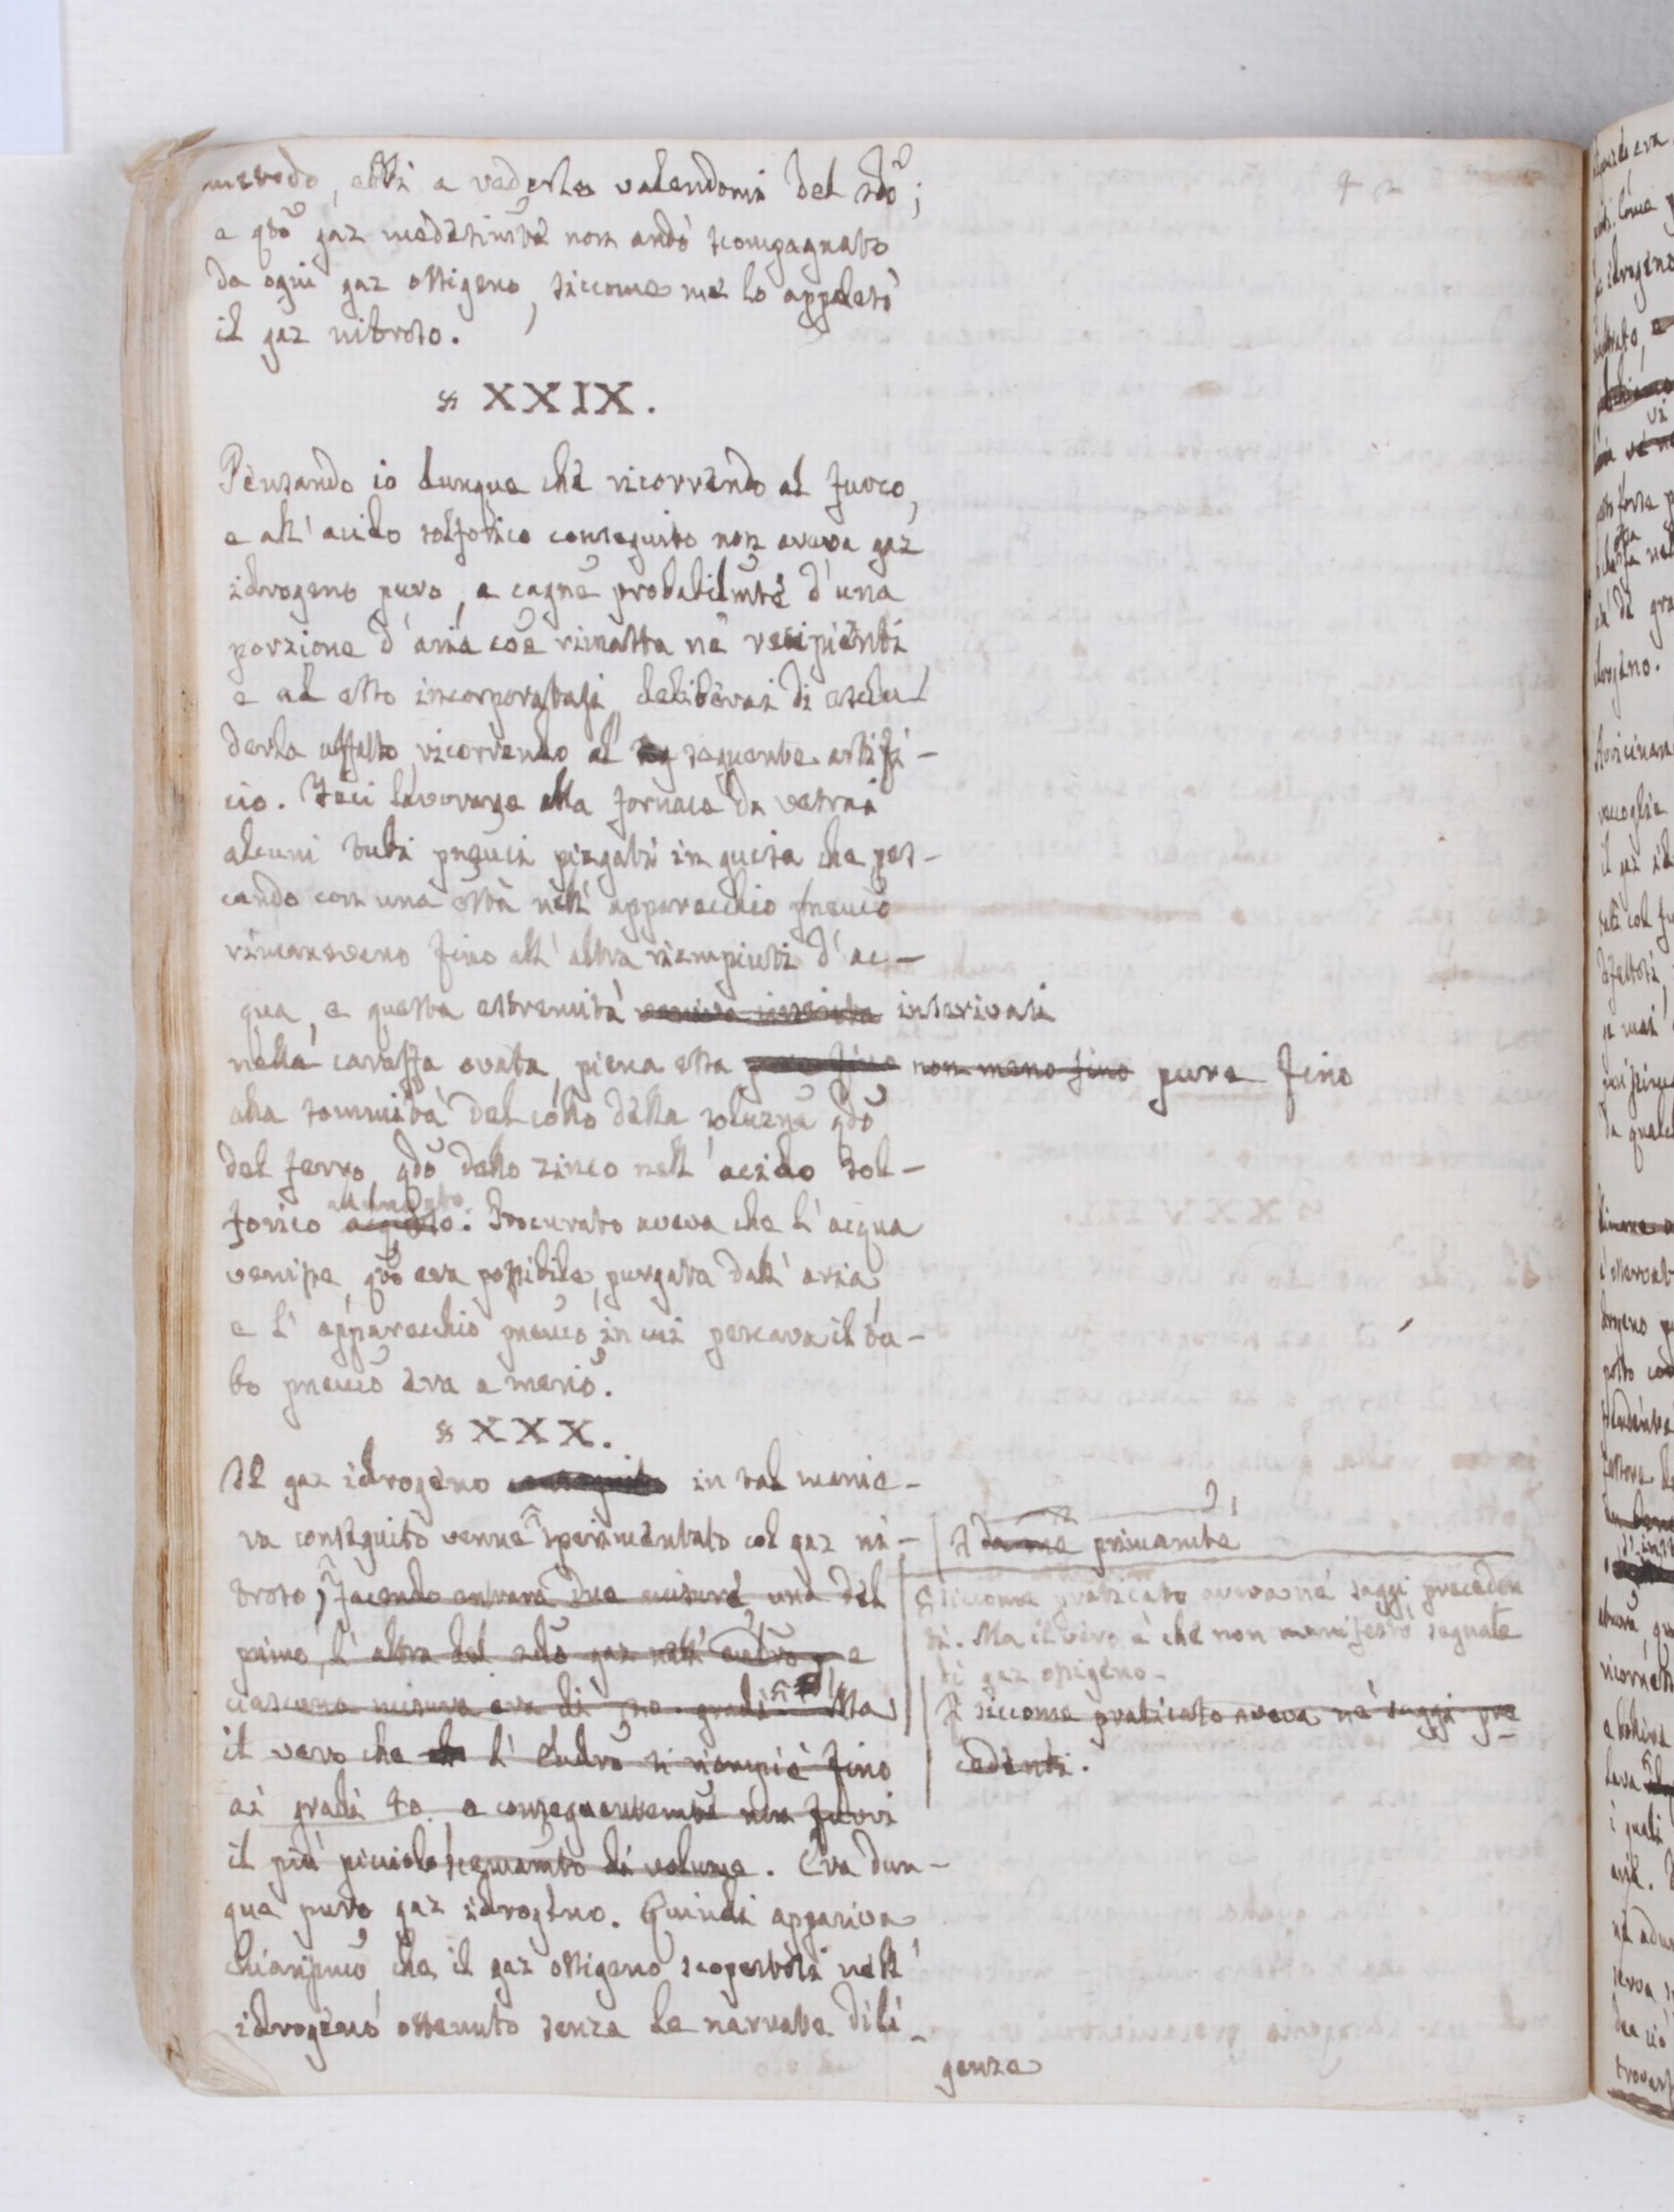 metodo, ebbi a vederlo valendomi del sdo;
e qdo gaz medesimte non andò scompagnato
da ogni gaz ossigeno, siccome me lo appalesò
il gaz nitroso.
§ XXIX.
Pensando io dunque che ricorrendo al fuoco,
e all' acido solforico conseguito non aveva gaz
idrogeno puro, a cagne probabilmte d'una
porzione d'aria coe rimasta ne' recipienti
e ad esso incorporatasi deliberai di esclu-
derla affatto ricorrendo al seguente artifi-
cio. Feci lavorare alla fornace da vetrai
alcuni tubi pneuci piegati in guisa che pes-
cando con una està nell' apparecchio pneuco
rimanevano fino all' altra riempiuti d'ac-
qua, e questa estremità veniva inserita inserivasi
nella caraffa ovata, piena essa non meno fino pure fino
alla sommità del collo della soluzne qdo
del ferro, qdo dello zinco nell' acido sol-
forico acquoso. allungato Procurato aveva che l'acqua
venisse, qto era possibile, purgata dall' aria,
e l' apparecchio pneuco in cui pescava il tu-
bo pneuco era a merio.
§ XXX.
Il gaz idrogeno conseguito in tal manie-
ra conseguito venne sperimentato col gaz ni-
troso, facendo entrare due misure una del
primo, l' altra del sdo gaz nell' eudro, e
ciascuna misura era di gradi. Ma
il vero che l' eudro si riempiè fino
ai gradi 40 e conseguentemte non fuvvi
il più picciolo scemamto di volume. Era dun-
que puro gaz idrogeno. Quindi appariva
chiarissimo che il gaz ossigeno scopertosi nell'
idrogeno ottenuto senza le narrate dili-
genze
da me primamte
siccome praticato aveva ne' saggi preceden
ti. Ma il vero è che non manifestò segnale
di gaz ossigeno-
siccome praticato aveva ne' saggi pre
cedenti.